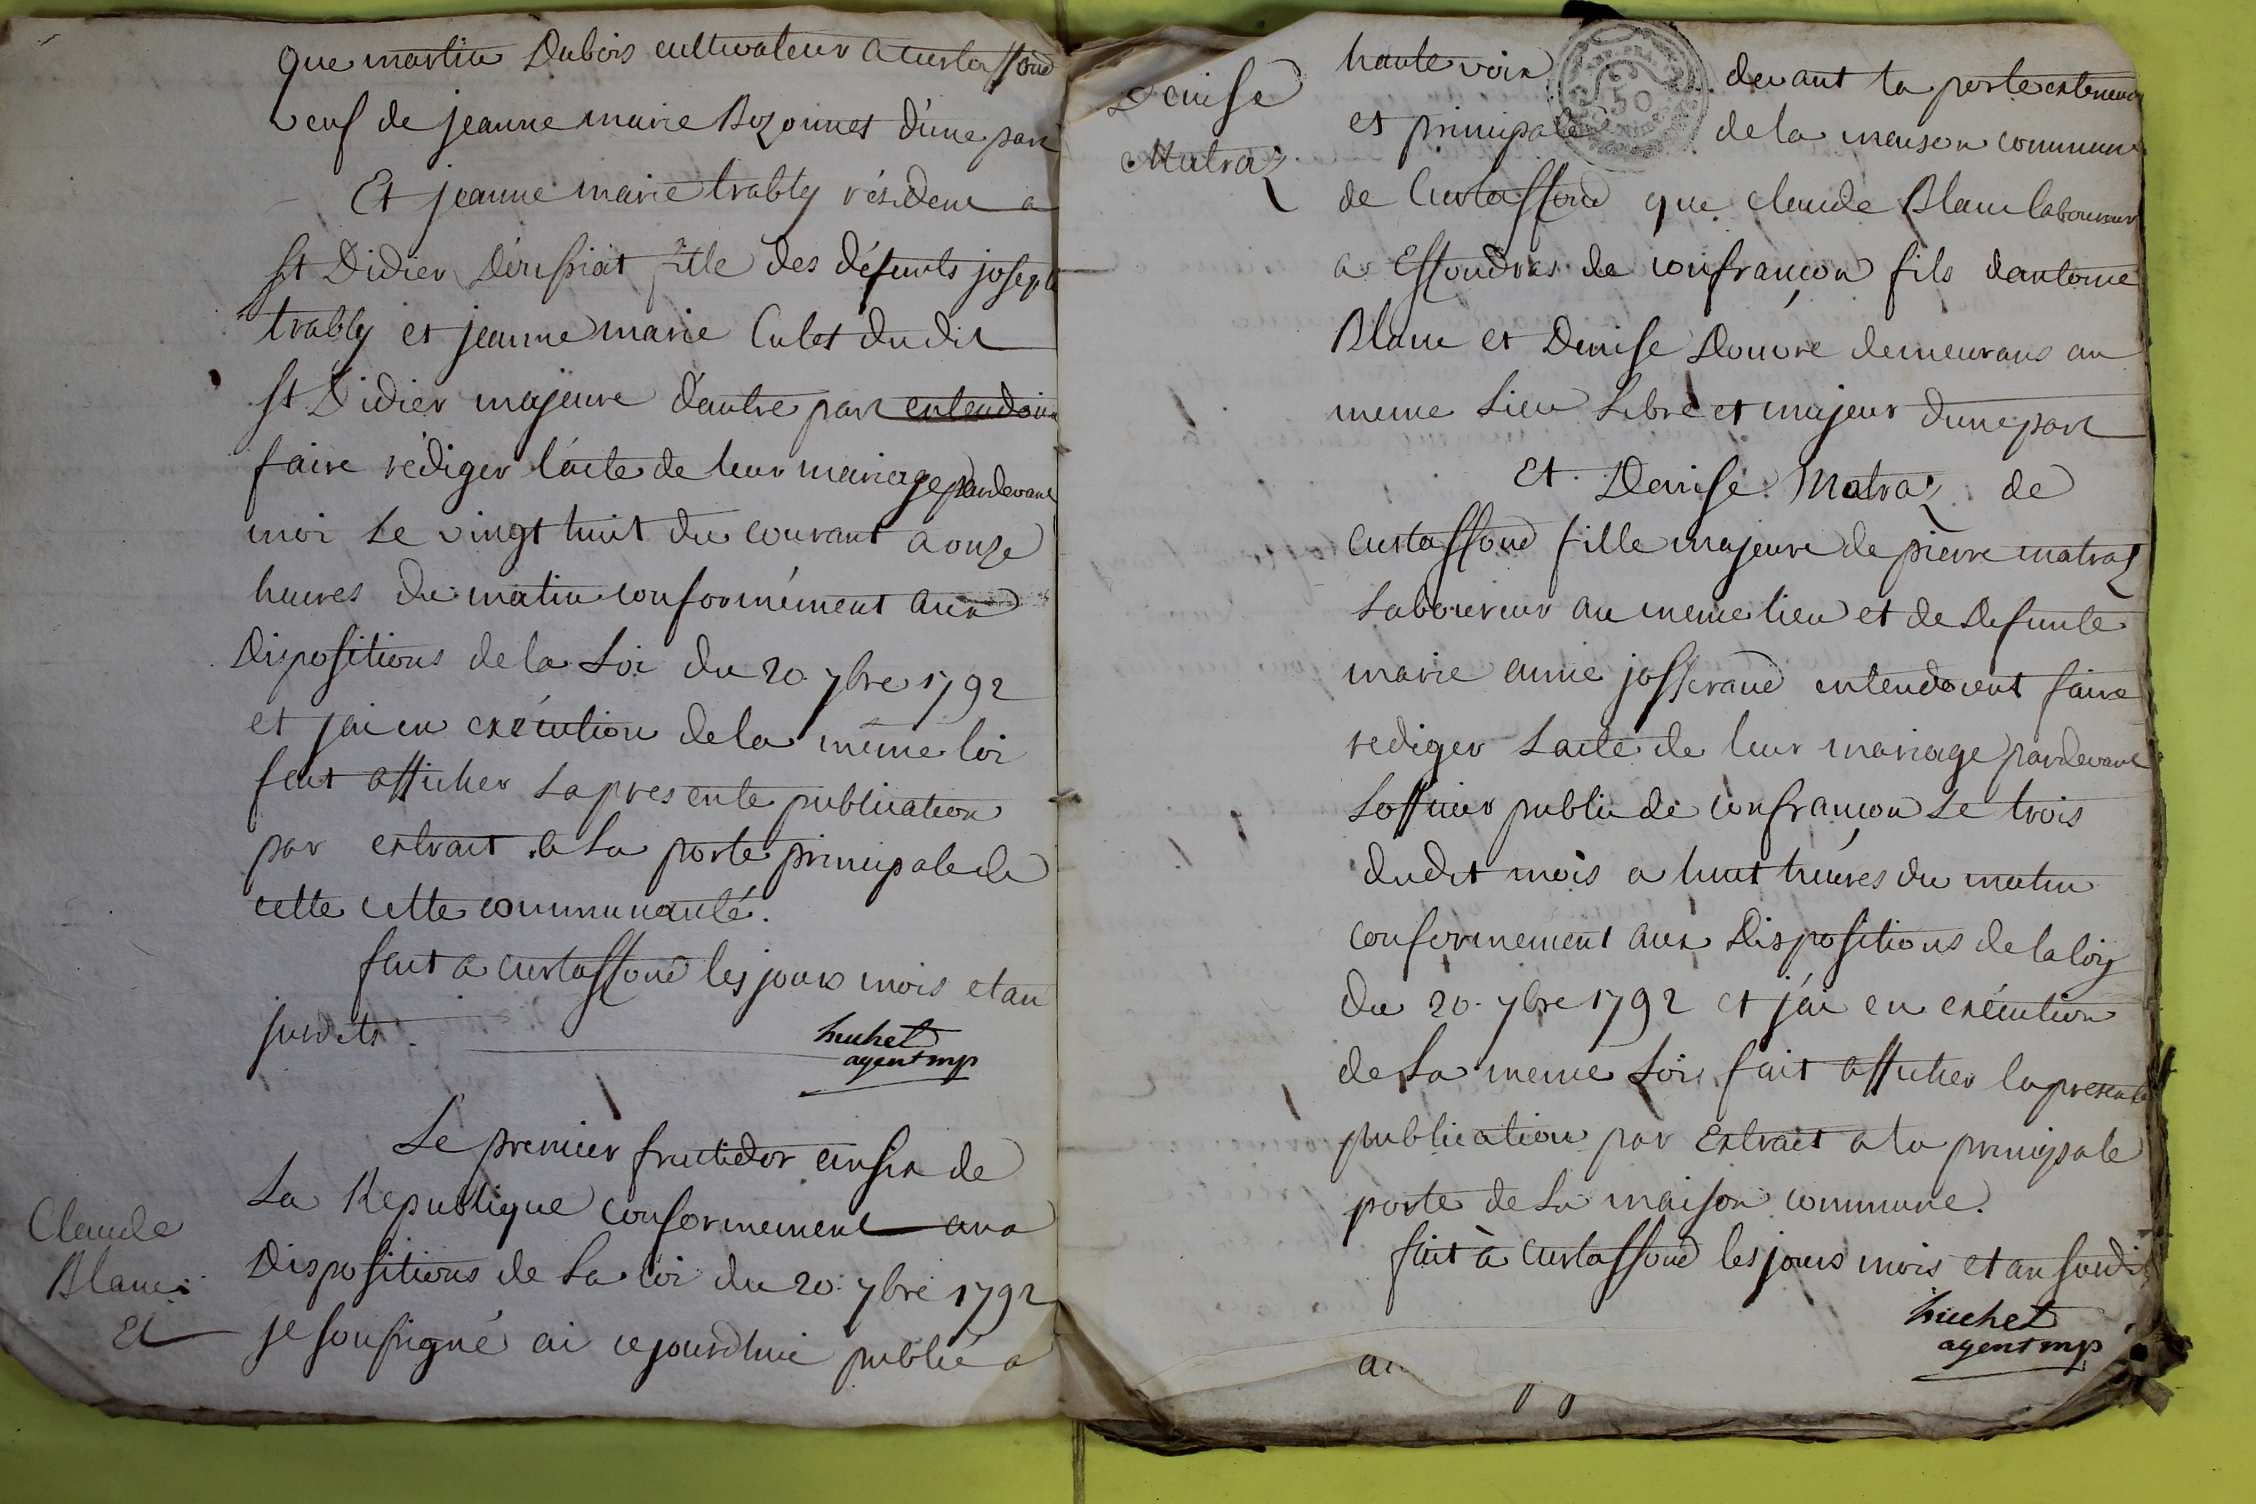 que martin Dubois cultivateur a curtaffond
veuf de jeanne marie Bozonnet d'une part
Et jeanne marie trably résidente a
st Didier Dousfiat fille des défunts joseph
trably et jeanne marie Culet dudit
st Didier majeure d'autre part entendoint
faire rédiger l'acte de leur mariage pardevant
moi le vingt huit du courant a onze
heures du matin conformément aux
Dispositions de la Loi du 20 7bre 1792
et j'ai en exécution de la même loi
fait afficher la presente publication
par extrait a la porte principale de
cette cette communauté.
fait a curtaffond les jours mois et an
susdits.
huchet
agent mp
Le premier fructidor an six de
La Republique conformement aux
Claude
Blanc
Et
Dispositions de La loi du 20 7bre 1792
je soussigné ai cejourdhui publié a
Denise
Matraz
haute voix devant la porte exterieure
et principale de la maison commune
50
de Curtaffond que claude Blanc laboureur
a Effondras de confrançon fils dantoine
Blanc et Denise Douvre demeurans au
meme Lieu Libre et majeur dune part
Et Denise Matraz de
curtaffond fille majeure de pierre matraz
Laboureur au meme lieu et de Defunte
marie anne josserand entendoient faire
rediger Lacte de leur mariage pardevant
Lofficier public de confrançon Le trois
dudit mois a huit heures du matin
conformement aux Dispositions de la loy
du 20 7bre 1792 et j'ai en exécution
de La meme Loi fait afficher la presente
publication par Extrait a la principale
porte de La maison commune.
fait à curtaffond les jours mois et an susdit
huchet
agent mp